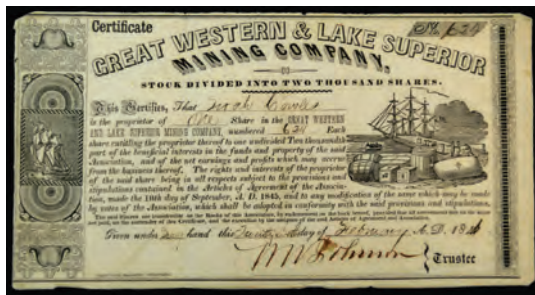 Certificate
No. 624
GREAT WESTERN & LAKE SUPERIOR
MINING COMPANY.
STOCK DIVIDED INTO TWO THOUSAND SHARES.
This Certifies, That Noah Cowles
is the proprietor of One Share in the GREAT WESTERN
AND LAKE SUPERIOR MINING COMPANY, numbered 624 Each
share entitling the proprietor thereof to one undivided Two thousandth
part of the beneficial interests in the funds and property of the said
Association, and of the net earnings and profits which may accrue
from the business thereof. The rights and interests of the proprietor
of the said share being in all respects subject to the provisions and
stipulations contained in the Articles of Agreement of the Associa-
tion, made the 10th day of September, A. D. 1845, and to any modification of the same which may be made
by votes of the Association, which shall be adopted in conformity with the said provisions and stipulations.
Given under my hand this day of February A. D. 184
Johnson Trustee